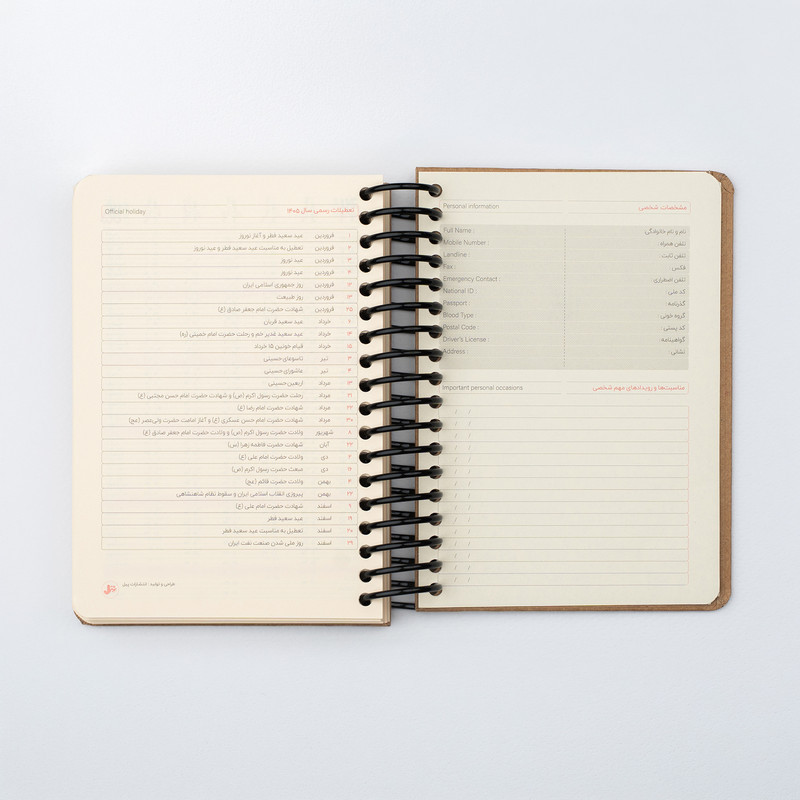 مشخصات شخصی Personal information
نام و نام خانوادگی: Full Name :
تلفن همراه: Mobile Number :
تلفن ثابت: Landline :
فکس: Fax :
تلفن اضطراری: Emergency Contact :
کد ملی: National ID :
گذرنامه: Passport :
گروه خونی: Blood Type :
کد پستی: Postal Code :
گواهینامه: Driver's License :
نشانی: Address :
مناسبت‌ها و رویدادهای مهم شخصی Important personal occasions
تعطیلات رسمی سال ۱۴۰۵ Official holiday
۱ فروردین عید سعید فطر و آغاز نوروز
۲ فروردین تعطیل به مناسبت عید سعید فطر و عید نوروز
۳ فروردین عید نوروز
۴ فروردین عید نوروز
۱۲ فروردین روز جمهوری اسلامی ایران
۱۳ فروردین روز طبیعت
۲۵ فروردین شهادت حضرت امام جعفر صادق (ع)
۶ خرداد عید سعید قربان
۱۴ خرداد عید سعید غدیر خم و رحلت حضرت امام خمینی (ره)
۱۵ خرداد قیام خونین ۱۵ خرداد
۳ تیر تاسوعای حسینی
۴ تیر عاشورای حسینی
۱۳ مرداد اربعین حسینی
۲۱ مرداد رحلت حضرت رسول اکرم (ص) و شهادت حضرت امام حسن مجتبی (ع)
۲۲ مرداد شهادت حضرت امام رضا (ع)
۳۰ مرداد شهادت حضرت امام حسن عسکری (ع) و آغاز امامت حضرت ولی‌عصر (عج)
۸ شهریور ولادت حضرت رسول اکرم (ص) و ولادت حضرت امام جعفر صادق (ع)
۲۳ آبان شهادت حضرت فاطمه زهرا (س)
۲ دی ولادت حضرت امام علی (ع)
۱۶ دی مبعث حضرت رسول اکرم (ص)
۴ بهمن ولادت حضرت قائم (عج)
۲۲ بهمن پیروزی انقلاب اسلامی ایران و سقوط نظام شاهنشاهی
۹ اسفند شهادت حضرت امام علی (ع)
۱۹ اسفند عید سعید فطر
۲۰ اسفند تعطیل به مناسبت عید سعید فطر
۲۹ اسفند روز ملی شدن صنعت نفت ایران
طراحی و تولید: انتشارات